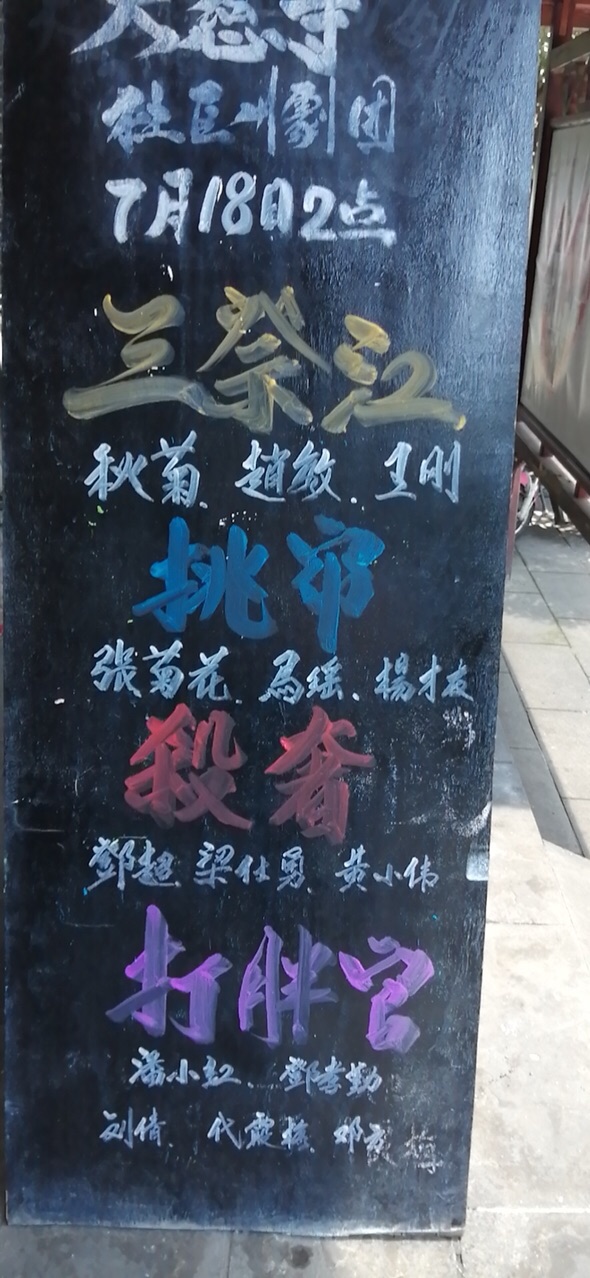 大慈寺
社区川劇团
7月18日2点
三祭江
秋菊、趙敏、王刚
挑帘
张菊花、馬瑶、楊才友
殺奢
鄧超、梁仕勇、黄小伟
打胖官
潘小红、鄧李勤
刘倩、代霞